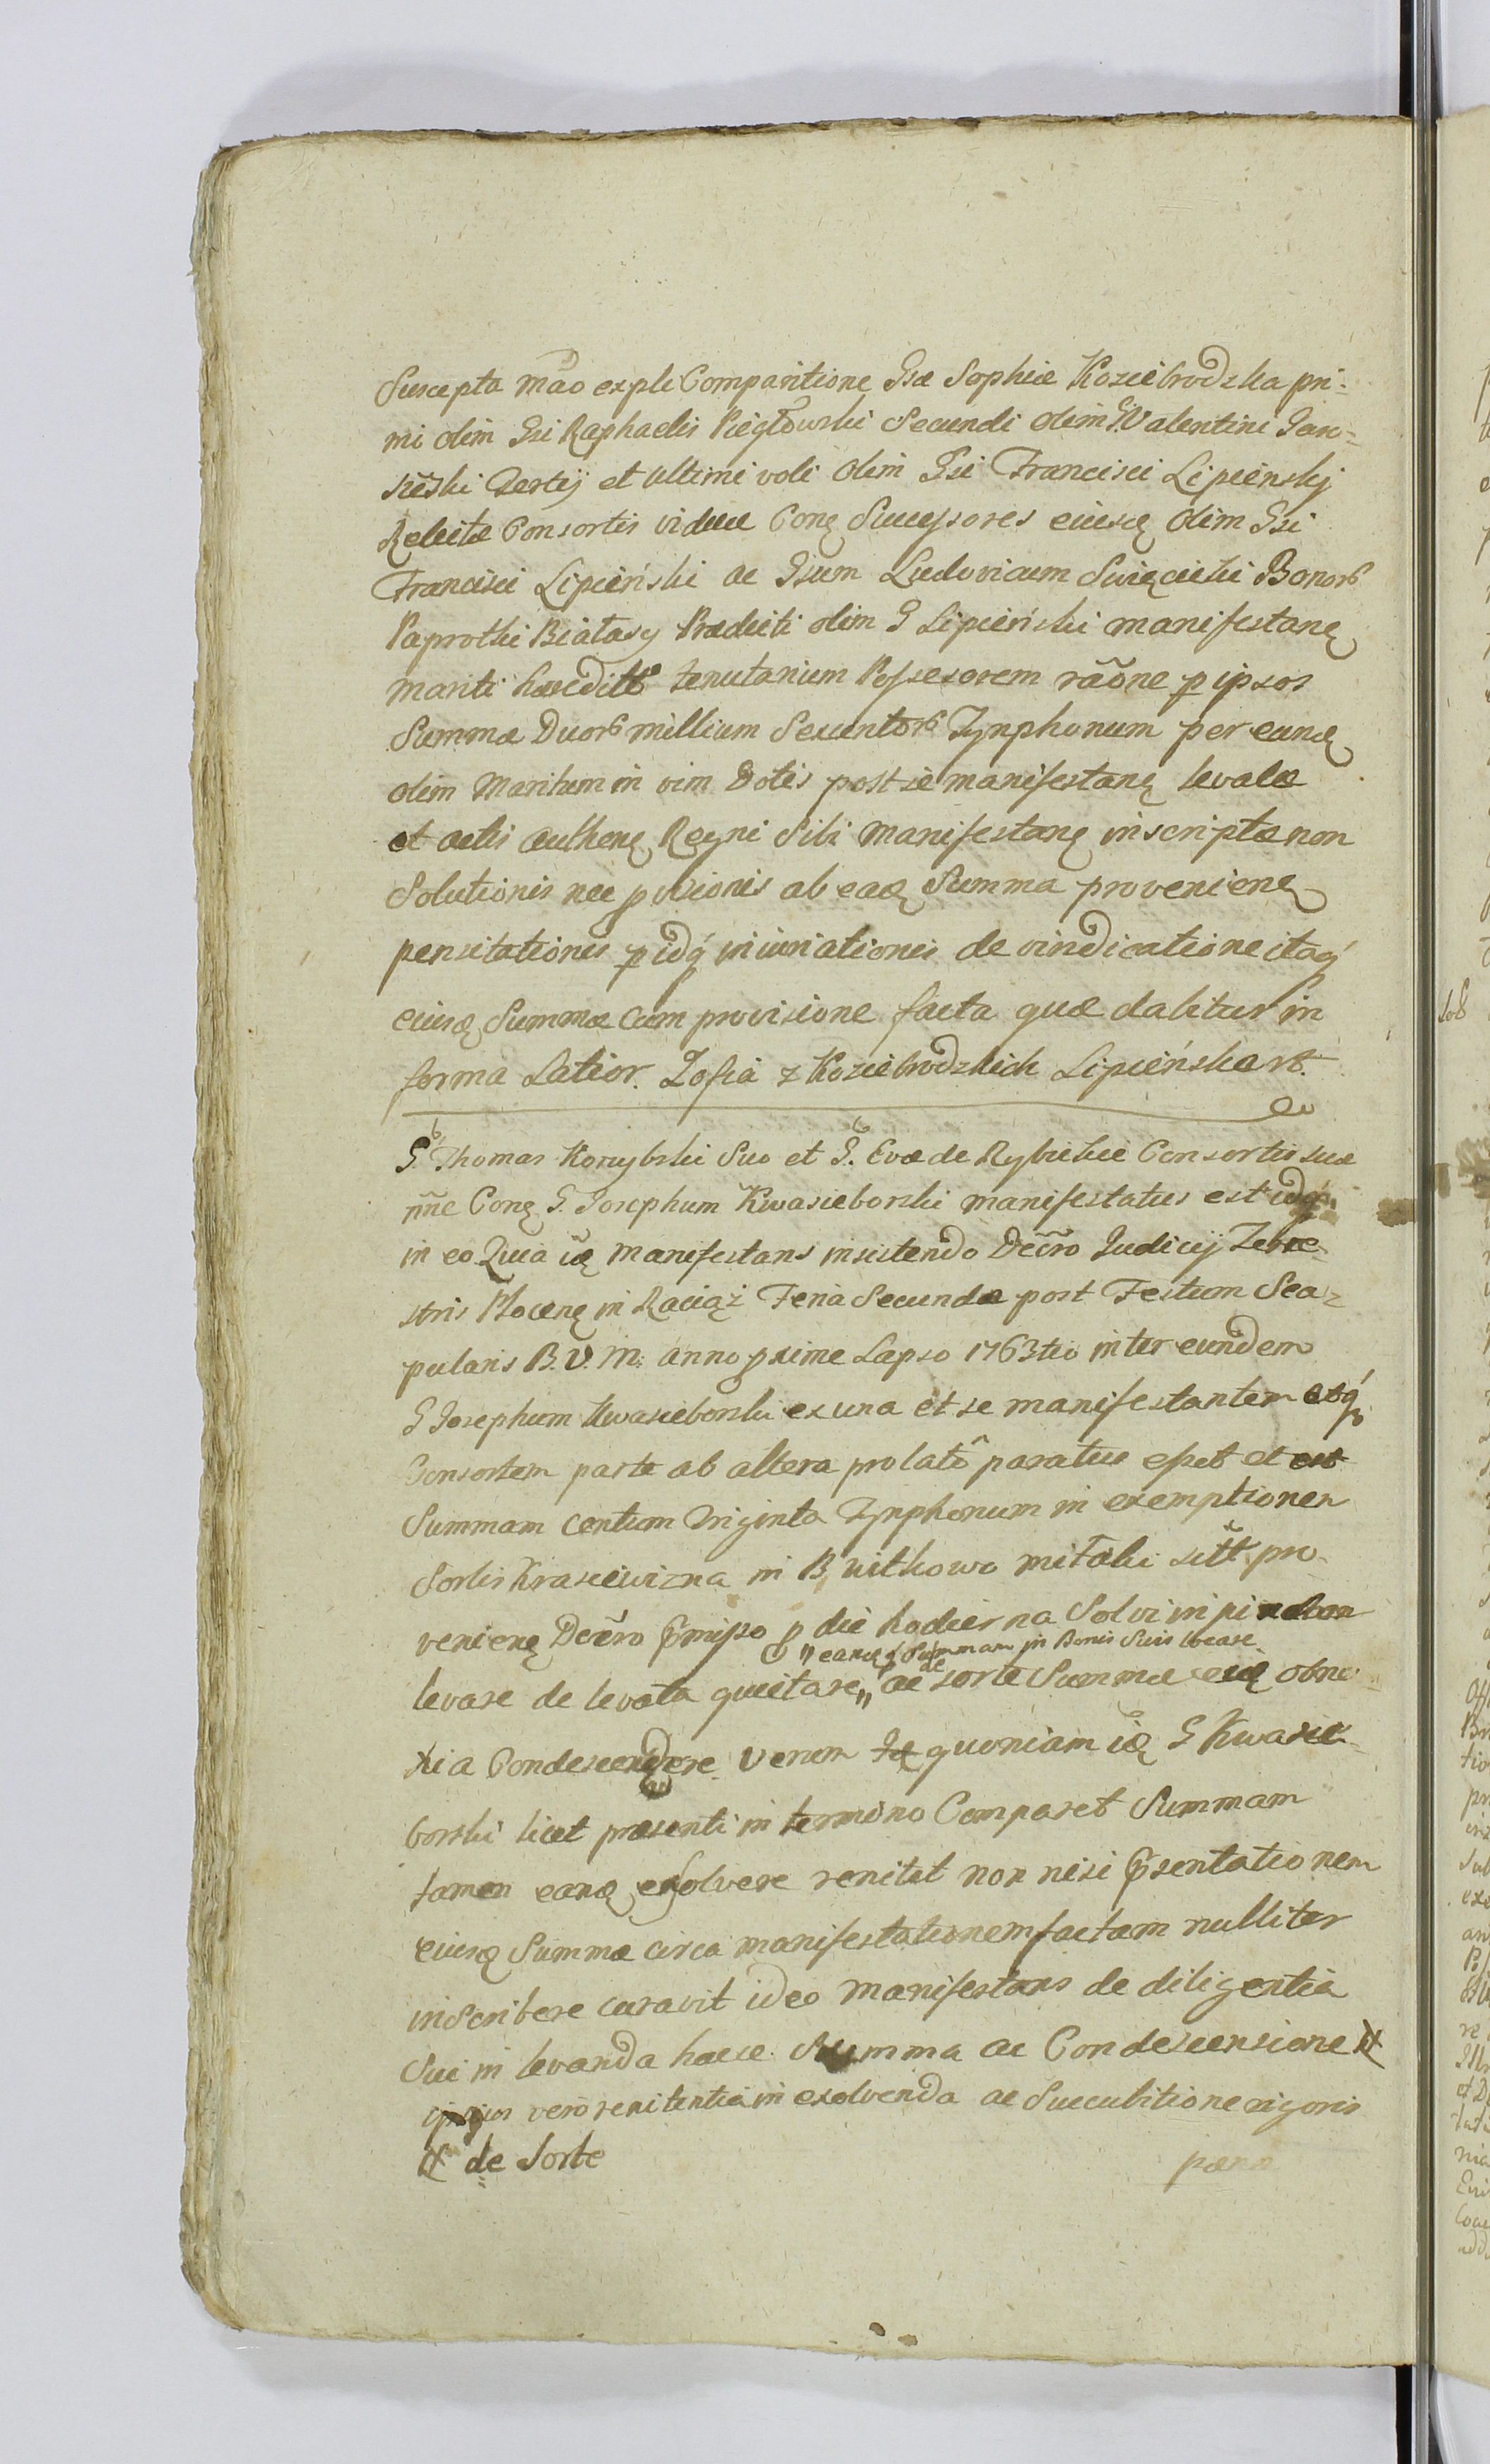 Suscepta mãõ expli Comparitione Gsæ Sophiæ Koziebrodzka pri-
mi olim Gsi Raphaelis Piegłowski Secundi olim G. Valentini Jan-
Tertij et ultimi voti olim Gsi Francisci Lipienskij
Relictæ Consortis viduæ Conę Successores eiusę olim Gsi
Francisci Lipieński ac Gsum Ludovicum Swięcicki Bonorb
Paprotki Białasy Prædicti olim G Lipieński manifestanę
mariti hæreditt tenutarium Possesorem rãõne p ipsos
Summæ Duorb millium Sexentorb Tynphonum per eunę
olim Maritum in vim Dotis post se manifestanę levatæ
et actis authenę Regni Sibi manifestanę inscriptæ non
Solutionis nec p visionis ab eaę Summa provenienę
pensitationis p idq́ iniuriationis de vindicatione itaq́
eiusę Summæ cum provisione facta quæ dabitur in
forma Latior. Zofia z Koziebrodzkich Lipieńska rt.
G. Thomas Korzybski Suo et G. Evæ de Rybickie Consortis suæ
nñe Conę G. Josephum Kwasieborski manifestatus est idq́
in eo Quia ię manifestans insistendo Decro Judicij Terre-
stris Plocenę in Raciąż Feria Secunda post Festum Sca-
pularis B. V. M. anno pxime Lapso 1763tio inter eundem
G Josephum Kwasieborski ex una et se manifestantem etq́
Consortem parte ab altera prolatô paratus esset et est
Summam centum triginta Tynphonum in exemptionem
Sortis Krasiewizna in B, witkowo sitt pro-
venienę Decro p̃misso p die hodierna Solvi in
„ eanę Summam in Bonis Suis locare
levare de levata quietare „ ac de sorte Summæ eię obno-
xia Condescendere verum quoniam ię G Kwasie-
borski licet præsenti in termino Comparet Summam
tamen eanę exsolvere renitet non nisi p̃sentationem
eiusę Summæ circa manifestationem factam nulliter
inscribere curavit ideo manifestans de diligentia
Sui in levanda hacce Summa ac Condescensione #
ipsius vero renitentia in exolvenda ac Succubitione rigoris
# de Sorte
pænæ